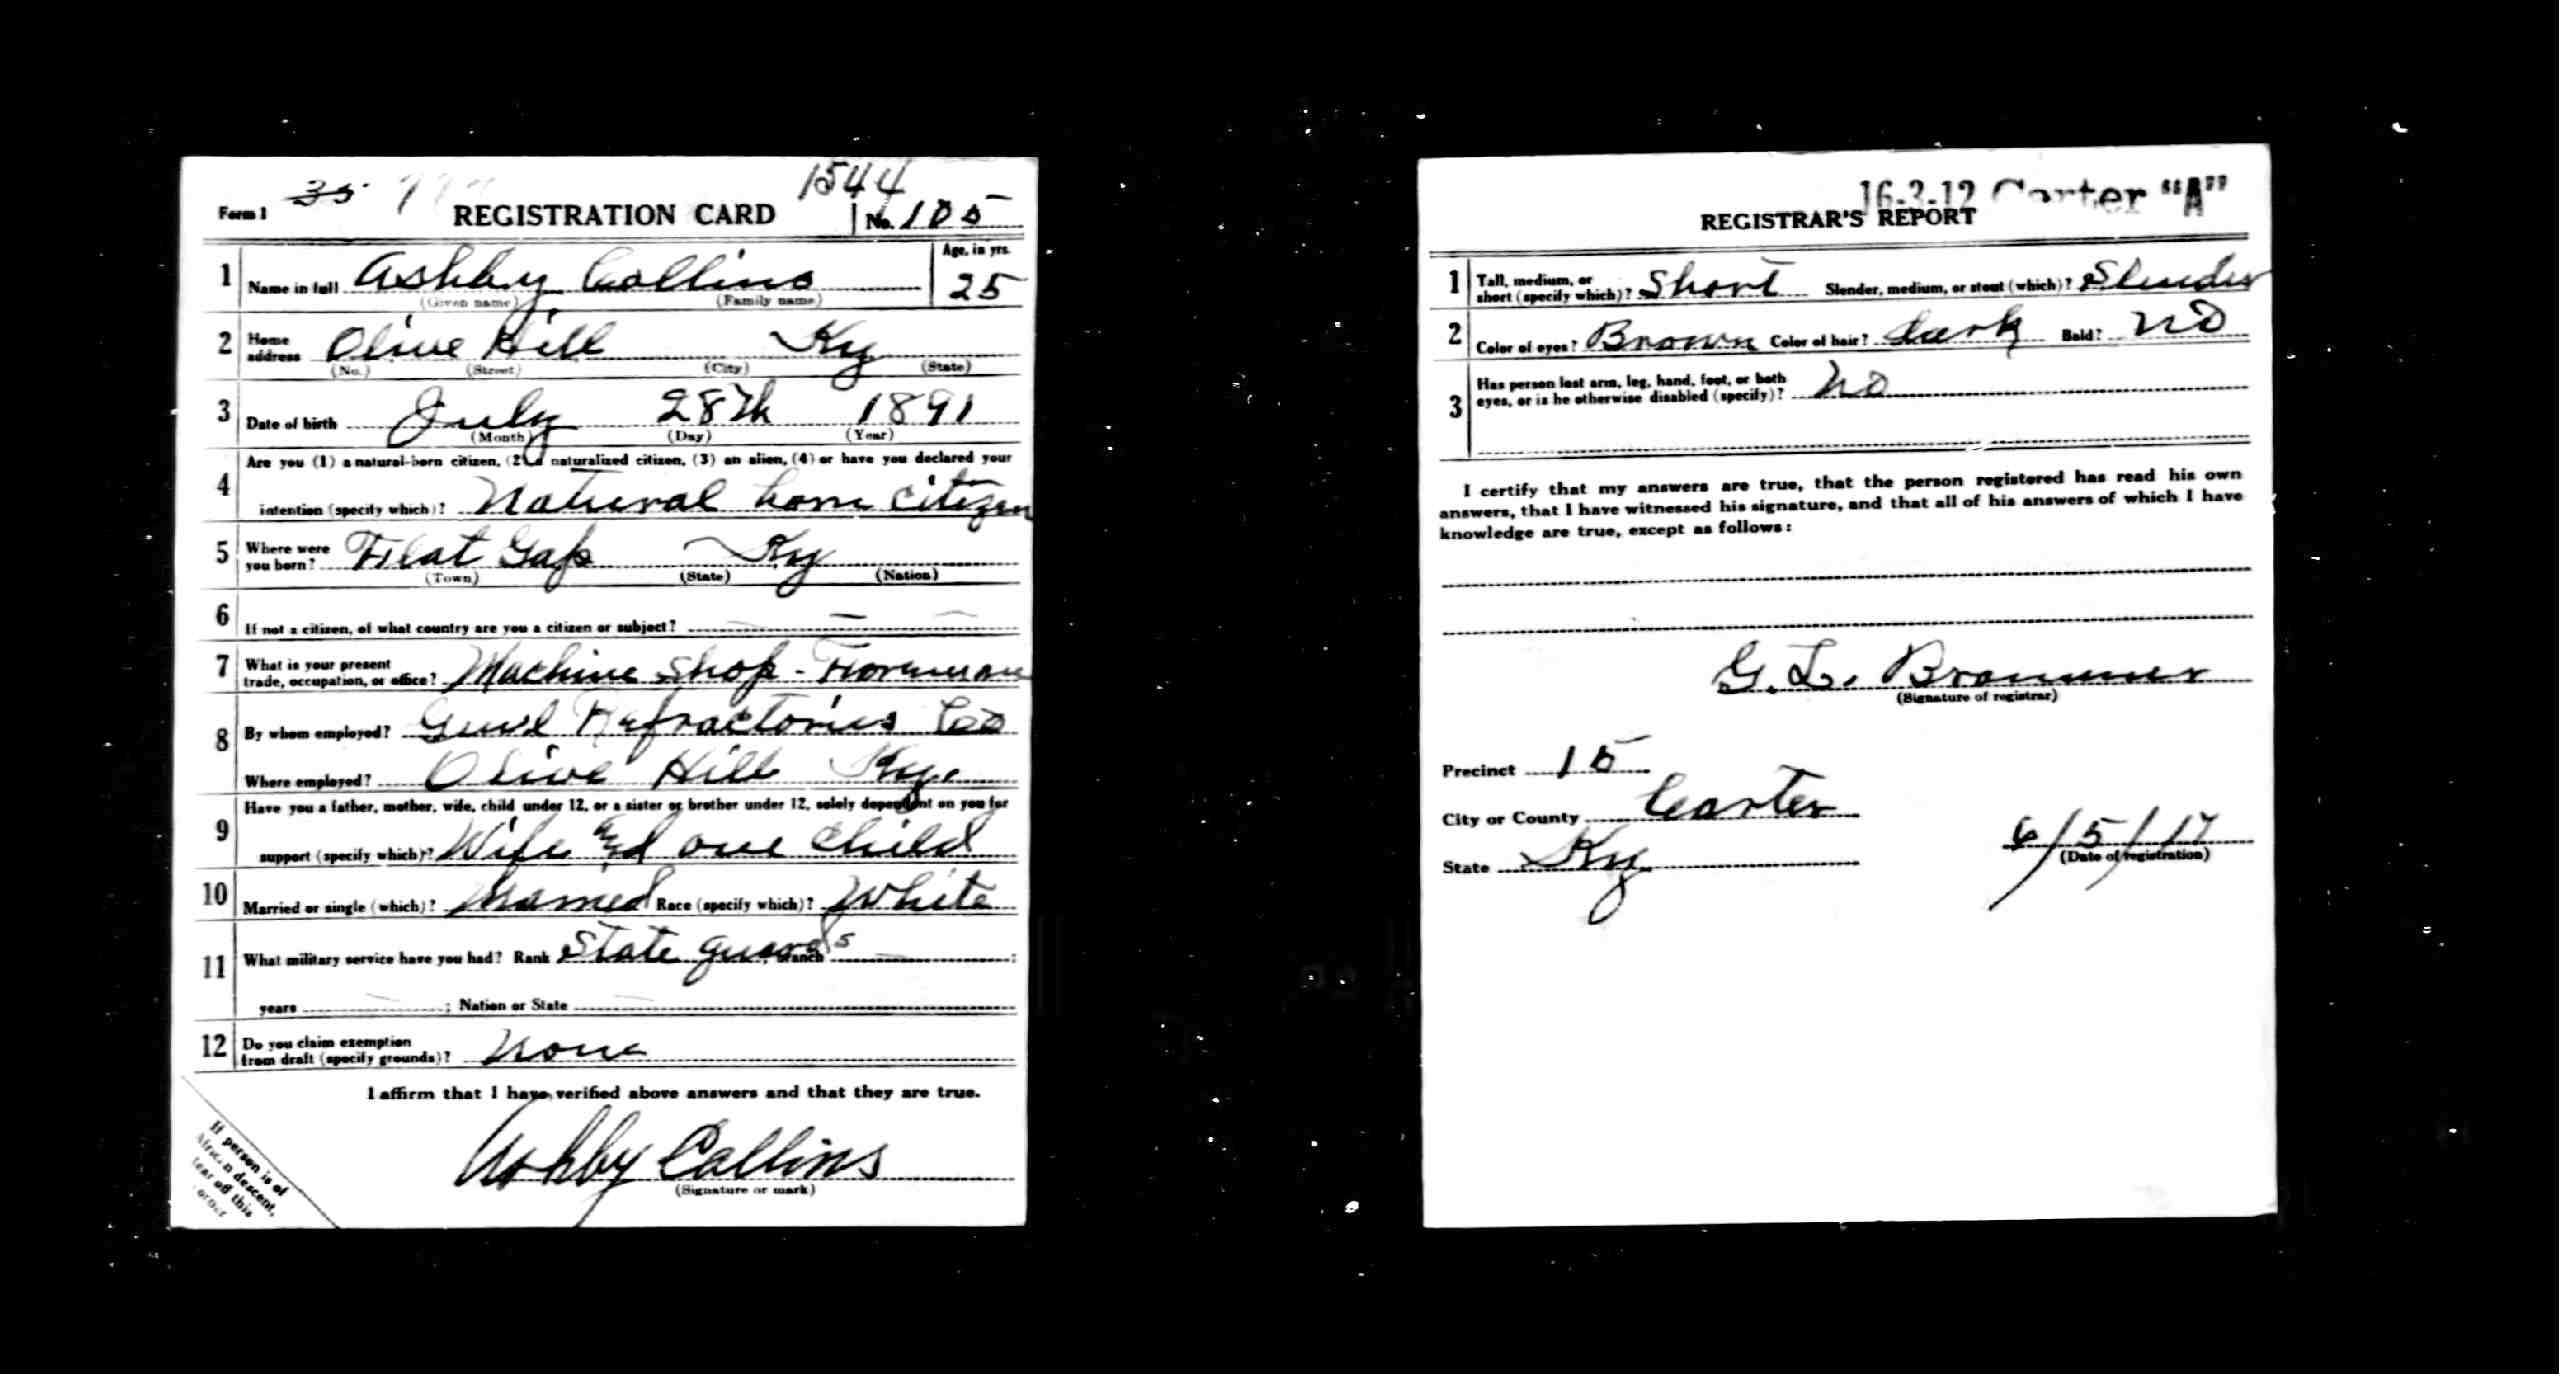 Form 1 35 REGISTRATION CARD 1544 No. 105
1 Name in full Ashby Collins Age, in yrs. 25
(Given name) (Family name)
2 Home address Olive Hill Ky
(No.) (Street) (City) (State)
3 Date of birth July 28th 1891
(Month) (Day) (Year)
4 Are you (1) a natural-born citizen, (2) a naturalized citizen, (3) an alien, (4) or have you declared your
intention (specify which)? Natural born citizen
5 Where were you born? Flat Gap Ky
(Town) (State) (Nation)
6 If not a citizen, of what country are you a citizen or subject?
7 What is your present trade, occupation, or office? Machine Shop - Foreman
8 By whom employed? Genl Refractories Co
Where employed? Olive Hill Ky.
9 Have you a father, mother, wife, child under 12, or a sister or brother under 12, solely dependent on you for
support (specify which)? Wife and one child
10 Married or single (which)? Married Race (specify which)? White
11 What military service have you had? Rank State guards; branch ;
years ; Nation or State
12 Do you claim exemption from draft (specify grounds)? None
I affirm that I have verified above answers and that they are true.
Ashby Collins
(Signature or mark)
If person is of
African descent,
tear off this
corner
16-3-12 Carter "A"
REGISTRAR'S REPORT
1 Tall, medium, or short (specify which)? Short Slender, medium, or stout (which)? Slender
2 Color of eyes? Brown Color of hair? dark Bald? no
3 Has person lost arm, leg, hand, foot, or both
eyes, or is he otherwise disabled (specify)? no
I certify that my answers are true, that the person registered has read his own
answers, that I have witnessed his signature, and that all of his answers of which I have
knowledge are true, except as follows:
G. L. Brammer
(Signature of registrar)
Precinct 15
City or County Carter
State Ky
6/5/17
(Date of registration)